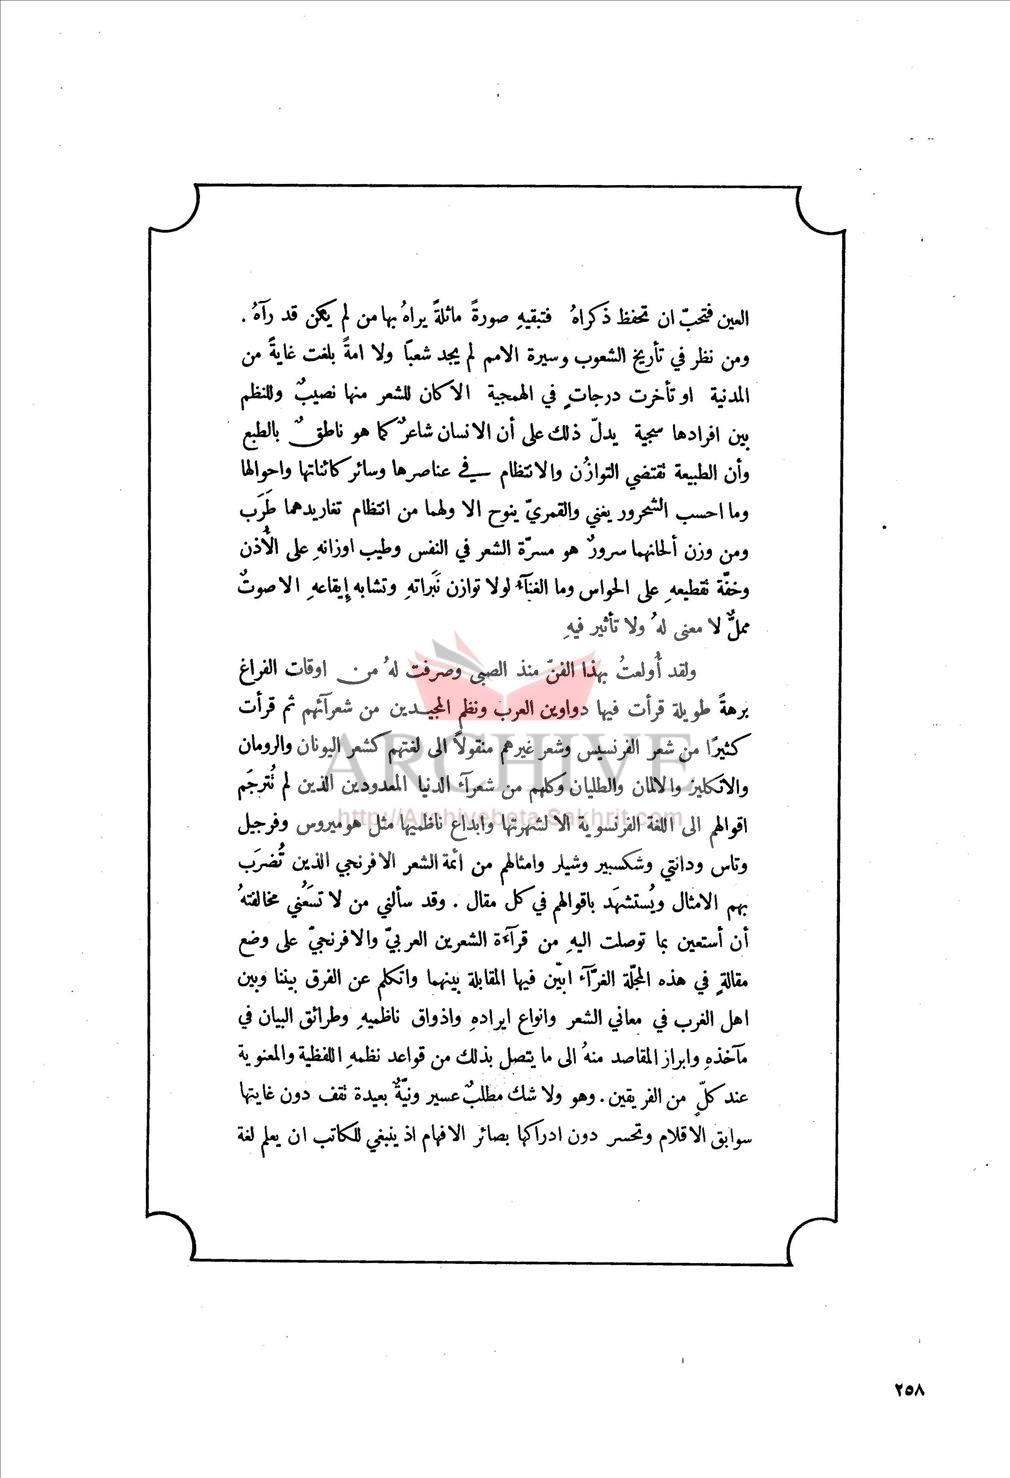 العين فتحبّ ان تحفظ ذكراهُ فتبقيهِ صورةً ماثلةً يراهُ بها من لم يكن قد رآهُ .
ومن نظر في تأريخ الشعوب وسيرة الامم لم يجد شعبًا ولا امةً بلغت غايةً من
المدنية او تأخرت درجاتٍ في الهمجية الا كان للشعر منها نصيبٌ وللنظم
بين افرادها سجية يدلّ ذلك على أن الانسان شاعرٌ كما هو ناطقٌ بالطبع
وأن الطبيعة تقتضي التوازُن والانتظام في عناصرها وسائر كائناتها واحوالها
وما احسب الشحرور يغني والقمريّ ينوح الا ولهما من انتظام تغاريدهما طَرَب
ومن وزن ألحانهما سرورٌ هو مسرّة الشعر في النفس وطيب اوزانهِ على الأذن
وخفّة تقطيعهِ على الحواس وما الغنآء لولا توازن نَبَراتهِ وتشابه إيقاعهِ الا صوتٌ
مملٌّ لا معنى لهُ ولا تأثير فيهِ
ولقد أُولعتُ بهذا الفنّ منذ الصبى وصرفت لهُ من اوقات الفراغ
برهةً طويلة قرأت فيها دواوين العرب ونظم المجيدين من شعرآئهم ثم قرأت
كثيرًا من شعر الفرنسيس وشعر غيرهم منقولاً الى لغتهم كشعر اليونان والرومان
والانكليز والالمان والطليان وكلهم من شعرآء الدنيا المعدودين الذين لم تُترجَم
اقوالهم الى اللغة الفرنسوية الا لشهرتها وابداع ناظميها مثل هوميروس وفرجيل
وتاس ودانتي وشكسبير وشيلر وامثالهم من ائمة الشعر الافرنجي الذين تُضرَب
بهم الامثال ويُستشهَد باقوالهم في كل مقال . وقد سألني من لا تسَعُني مخالفتهُ
أن أستعين بما توصلت اليهِ من قرآءة الشعرين العربيّ والافرنجيّ على وضع
مقالةٍ في هذه المجلّة الغرّآء ابيّن فيها المقابلة بينهما واتكلم عن الفرق بيننا وبين
اهل الغرب في معاني الشعر وانواع ايرادهِ واذواق ناظميهِ وطرائق البيان في
مآخذهِ وابراز المقاصد منهُ الى ما يتصل بذلك من قواعد نظمهِ اللفظية والمعنوية
عند كلٍّ من الفريقين . وهو ولا شك مطلبٌ عسير ونيّةٌ بعيدة تقف دون غايتها
سوابق الاقلام وتحسر دون ادراكها بصائر الافهام اذ ينبغي للكاتب ان يعلم لغة
ARCHIVE
http://Archivebeta.Sakhrit.com
٢٥٨